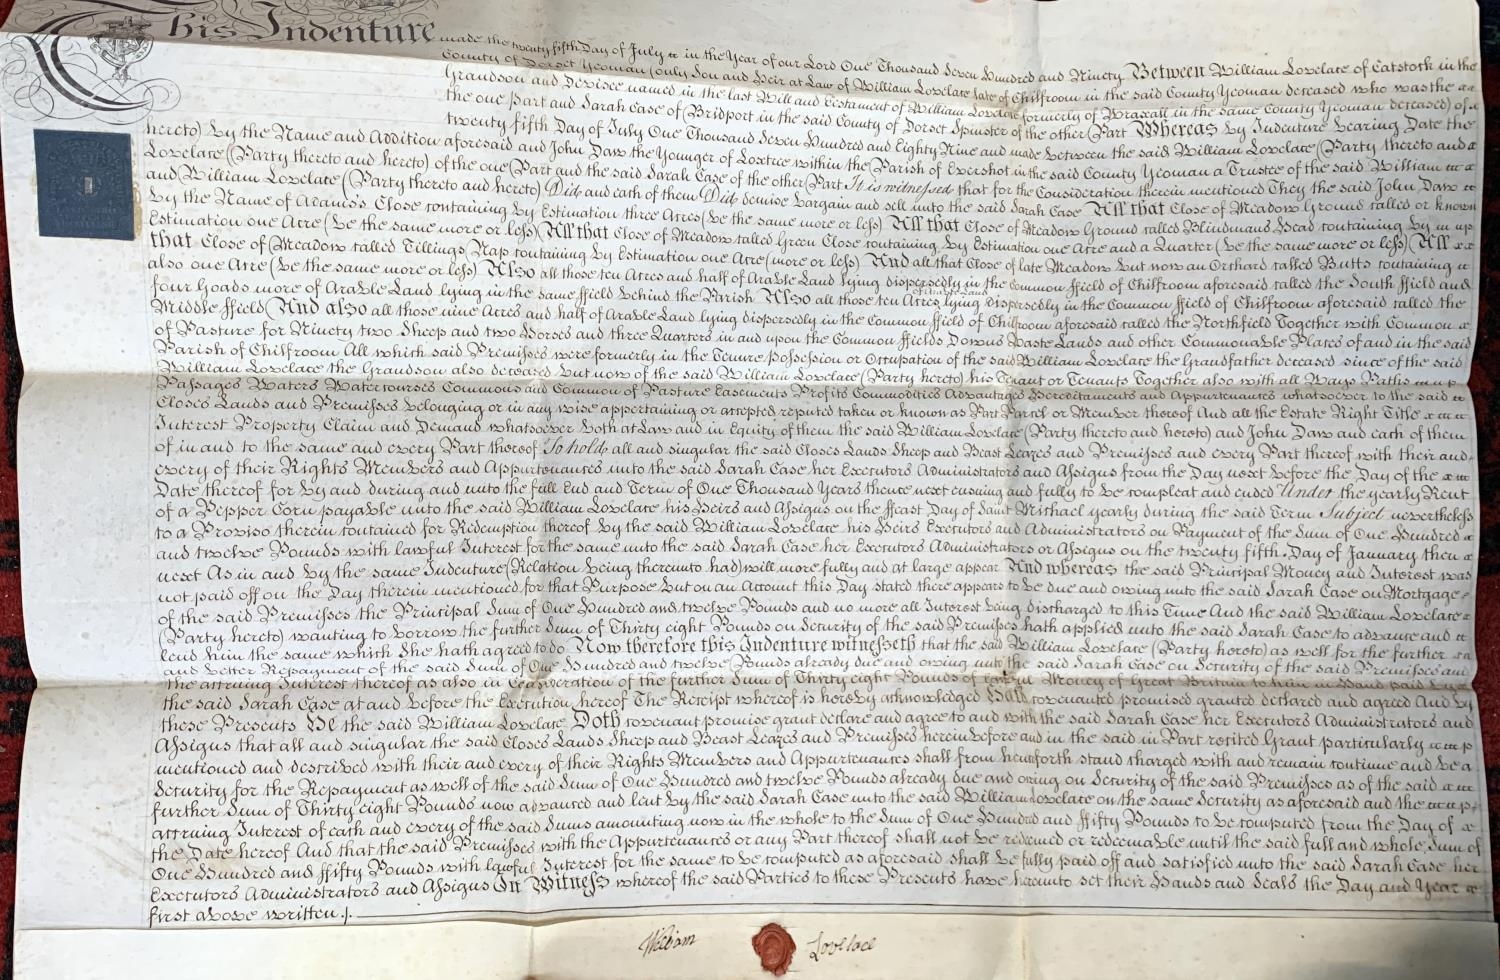 This Indenture made the twenty fifth Day of July in the Year of our Lord One Thousand Seven Hundred and Ninety Between William Lovelace of Catstock in the
County of Dorset Yeoman (only Son and Heir at Law of William Lovelace late of Chilfroom in the said County Yeoman deceased who was the
Grandson and Devisee named in the last Will and Testament of William Lovelace formerly of Wraxall in the same County Yeoman deceased) of
the one Part and Sarah Case of Bridport in the said County of Dorset Spinster of the other Part Whereas by Indenture bearing Date the
twenty fifth Day of July One Thousand Seven Hundred and Eighty Nine and made between the said William Lovelace (Party thereto and
hereto) by the Name and Addition aforesaid and John Daw the Younger of Loxtree within the Parish of Evershot in the said County Yeoman a Trustee of the said William
Lovelace (Party thereto and hereto) of the one Part and the said Sarah Case of the other Part It is witnessed that for the Consideration therein mentioned They the said John Daw
and William Lovelace (Party thereto and hereto) Did and each of them Did demise bargain and sell unto the said Sarah Case All that Close of Meadow Ground called or known
by the Name of Adams's Close containing by Estimation three Acres (be the same more or less) All that Close of Meadow Ground called Blindmans Head containing by
Estimation one Acre (be the same more or less) All that Close of Meadow called Green Close containing by Estimation one Acre and a Quarter (be the same more or less) All
that Close of Meadow called Tillings Nap containing by Estimation one Acre (more or less) And all that Close of late Meadow but now an Orchard called Butts containing
also one Acre (be the same more or less) Also all those ten Acres and half of Arable Land lying dispersedly in the Common ffield of Chilfroom aforesaid called the South ffield and
four Goads more of Arable Land lying in the same ffield behind the Parish Also all those ten Acres of Arable Land lying dispersedly in the Common ffield of Chilfroom aforesaid called the
Middle ffield And also all those nine Acres and half of Arable Land lying dispersedly in the Common ffield of Chilfroom aforesaid called the Northfield Together with Common
of Pasture for Ninety two Sheep and two Horses and three Quarters in and upon the Common ffields Downs Waste Lands and other Commonable Places of and in the said
Parish of Chilfroom All which said Premisses were formerly in the Tenure Possession or Occupation of the said William Lovelace the Grandfather deceased since of the said
William Lovelace the Grandson also deceased but now of the said William Lovelace (Party hereto) his Tenant or Tenants Together also with all Ways Paths
Passages Waters Watercourses Commons and Common of Pasture Easements Profits Commodities Advantages Hereditaments and Appurtenances whatsoever to the said
Closes Lands and Premisses belonging or in any wise appertaining or accepted reputed taken or known as Part Parcel or Member thereof And all the Estate Right Title
Interest Property Claim and Demand whatsoever both at Law and in Equity of them the said William Lovelace (Party thereto and hereto) and John Daw and each of them
of in and to the same and every Part thereof To hold all and singular the said Closes Lands Sheep and Beast Leazes and Premisses and every Part thereof with their and
every of their Rights Members and Appurtenances unto the said Sarah Case her Executors Administrators and Assigns from the Day next before the Day of the
Date thereof for by and during and unto the full End and Term of One Thousand Years thence next ensuing and fully to be compleat and ended Under the yearly Rent
of a Pepper Corn payable unto the said William Lovelace his Heirs and Assigns on the ffeast Day of Saint Michael yearly during the said Term Subject nevertheless
to a Proviso therein contained for Redemption thereof by the said William Lovelace his Heirs Executors and Administrators on Payment of the Sum of One Hundred
and twelve Pounds with lawful Interest for the same unto the said Sarah Case her Executors Administrators or Assigns on the twenty fifth Day of January then
next As in and by the same Indenture (Relation being thereunto had) will more fully and at large appear And whereas the said Principal Money and Interest was
not paid off on the Day therein mentioned for that Purpose but on an Account this Day stated there appears to be due and owing unto the said Sarah Case on Mortgage
of the said Premisses the Principal Sum of One Hundred and twelve Pounds and no more all Interest being discharged to this Time And the said William Lovelace
(Party hereto) wanting to borrow the further Sum of Thirty eight Pounds on Security of the said Premisses hath applied unto the said Sarah Case to advance and
lend him the same which She hath agreed to do Now therefore this Indenture witnesseth that the said William Lovelace (Party hereto) as well for the further
and better Repayment of the said Sum of One Hundred and twelve Pounds already due and owing unto the said Sarah Case on Security of the said Premisses and
the accruing Interest thereof as also in Consideration of the further Sum of Thirty eight Pounds of lawful Money of Great Britain to him in Hand paid by
the said Sarah Case at and before the Execution hereof The Receipt whereof is hereby acknowledged Hath covenanted promised granted declared and agreed And by
these Presents He the said William Lovelace Doth covenant promise grant declare and agree to and with the said Sarah Case her Executors Administrators and
Assigns that all and singular the said Closes Lands Sheep and Beast Leazes and Premisses herein before and in the said in Part recited Grant particularly
mentioned and described with their and every of their Rights Members and Appurtenances shall from henceforth stand charged with and remain continue and be a
Security for the Repayment as well of the said Sum of One Hundred and twelve Pounds already due and owing on Security of the said Premisses as of the said
further Sum of Thirty eight Pounds now advanced and lent by the said Sarah Case unto the said William Lovelace on the same Security as aforesaid and the
accruing Interest of each and every of the said Sums amounting now in the whole to the Sum of One Hundred and ffifty Pounds to be computed from the Day of
the Date hereof And that the said Premisses with the Appurtenances or any Part thereof shall not be redeemed or redeemable until the said full and whole Sum of
One Hundred and ffifty Pounds with lawful Interest for the same to be computed as aforesaid shall be fully paid off and satisfied unto the said Sarah Case her
Executors Administrators and Assigns In Witness whereof the said Parties to these Presents have hereunto set their Hands and Seals the Day and Year
first above written.
William Lovelace